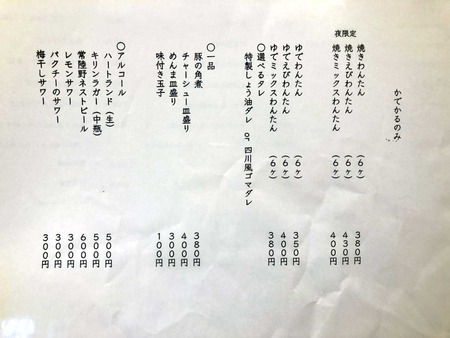 かでかるのみ
夜限定
焼きわんたん （６ヶ） ３８０円
焼きえびわんたん （６ヶ） ４３０円
焼きミックスわんたん （６ヶ） ４００円
ゆでわんたん （６ヶ） ３５０円
ゆでえびわんたん （６ヶ） ４００円
ゆでミックスわんたん （６ヶ） ３８０円
〇選べるタレ
特製しょう油ダレ or 四川風ゴマダレ
〇一品
豚の角煮 ３８０円
チャーシュー皿盛り ４００円
めんま皿盛り ３００円
味付き玉子 １００円
〇アルコール
ハートランド（生） ５００円
キリンラガー（中瓶） ５００円
常陸野ネストビール ６００円
レモンサワー ３００円
パクチーのサワー ３００円
梅干しサワー ３００円